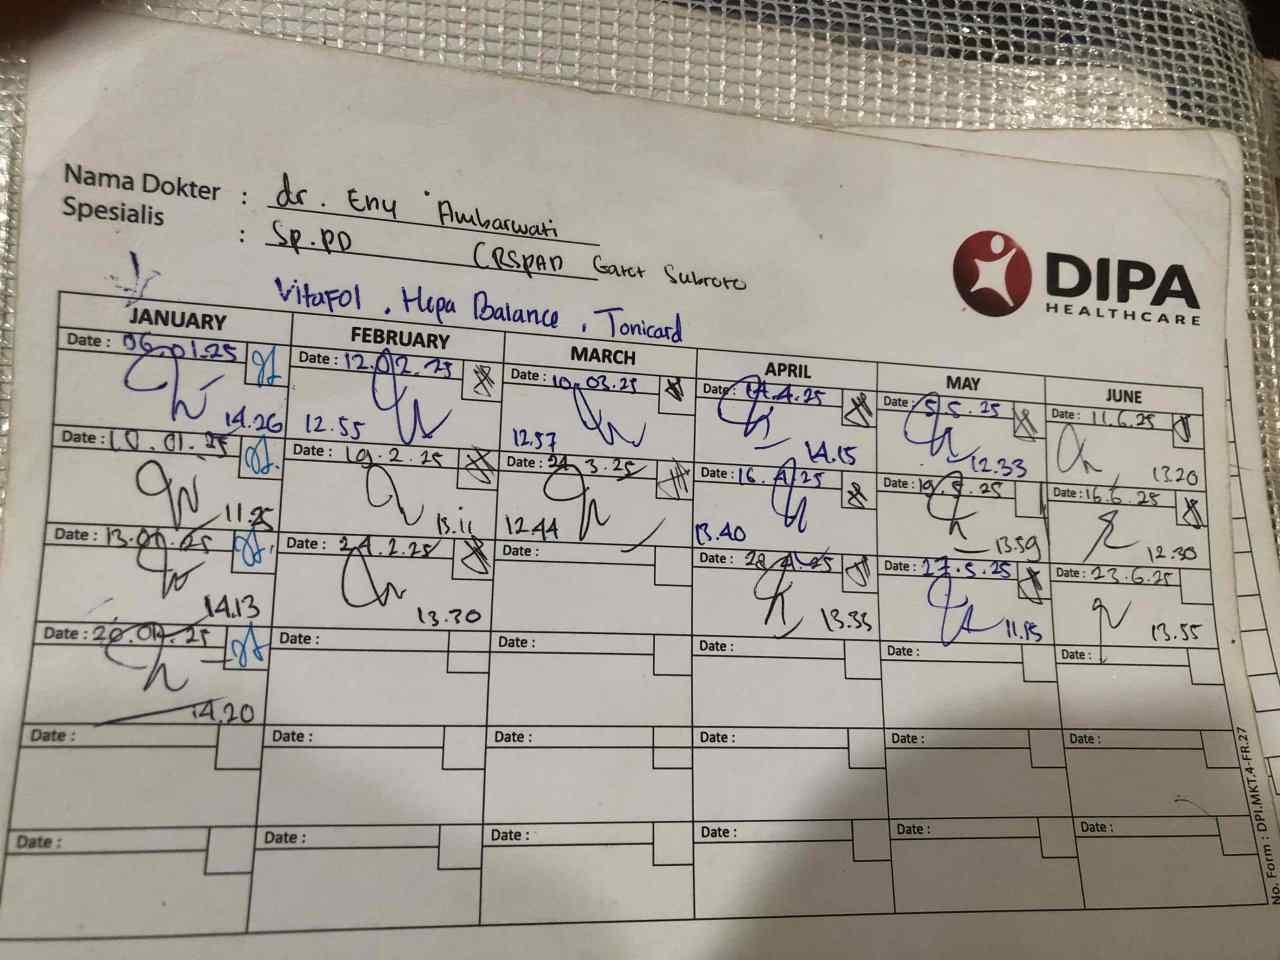 Nama Dokter : dr. Eny Ambarwati
Spesialis : Sp.PD (RSPAD Gatot Subroto
DIPA
HEALTHCARE
Vitafol , Hepa Balance , Tonicard
JANUARY FEBRUARY MARCH APRIL MAY JUNE
Date : 06.01.25 Date : 12.02.25 Date : 10.03.25 Date : 14.4.25 Date : 5.5.25 Date : 11.6.25
14.26 12.55 12.57 14.15 12.33 13.20
Date : 10.01.25 Date : 19.2.25 Date : 24.3.25 Date : 16.4.25 Date : 19.5.25 Date : 16.6.25
11.25 13.11 12.44 13.40 13.59 12.30
Date : 13.01.25 Date : 24.2.25 Date : Date : 28.4.25 Date : 27.5.25 Date : 23.6.25
14.13 13.30 13.35 11.15 13.55
Date : 20.01.25 Date : Date : Date : Date : Date :
14.20
Date : Date : Date : Date : Date : Date :
Date : Date : Date : Date : Date : Date :
No. Form : DPI.MKT.4-FR.27